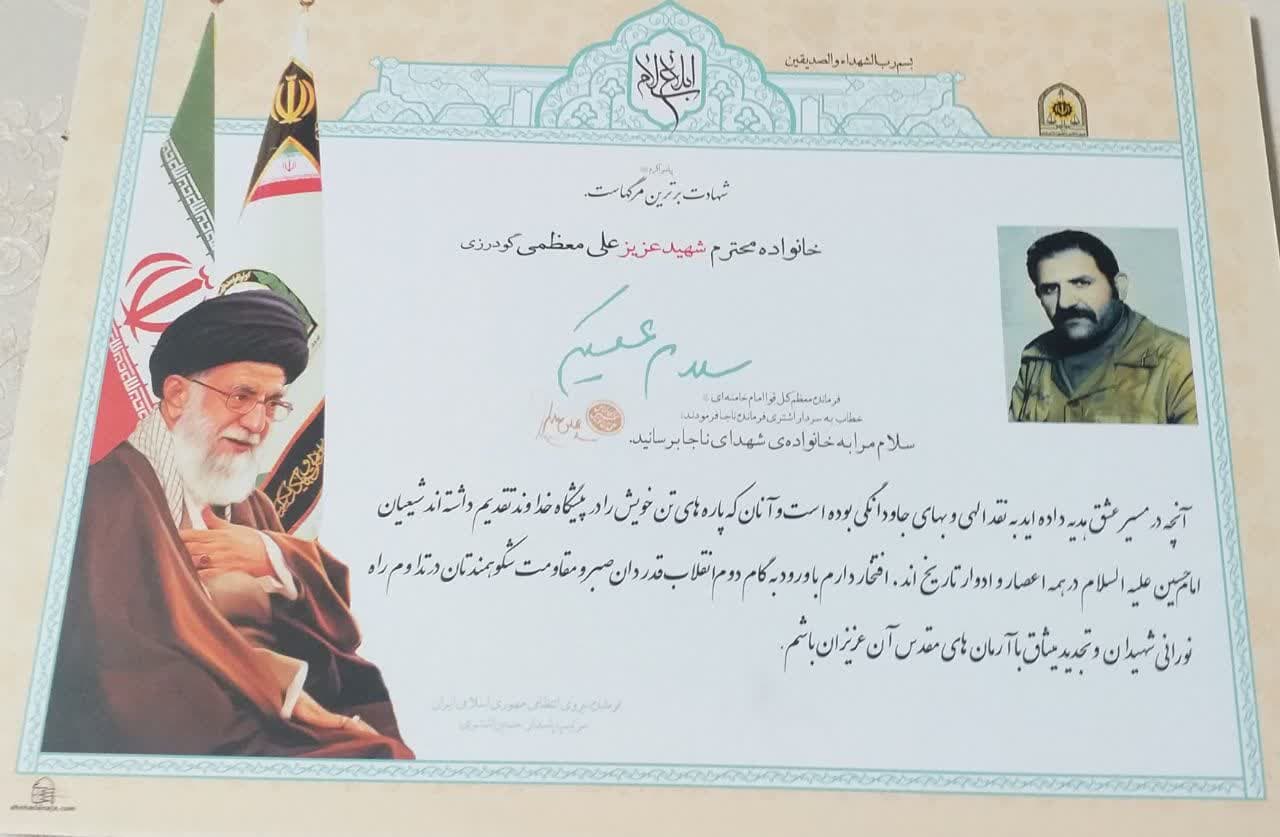 بسم رب الشهداء والصدیقین
ابلاغ سلام
پیامبر اکرم
شهادت برترین مرگهاست.
خانواده محترم شهید عزیز علی معظمی گودرزی
سلام علیکم
فرمانده معظم کل قوا امام خامنه ای
خطاب به سردار اشتری فرمانده ناجا فرمودند:
سلام مرا به خانواده‌ی شهدای ناجا برسانید.
آنچه در مسیر عشق هدیه داده اید به نقد الهی و بهای جاودانگی بوده است و آنان که پاره های تن خویش را در پیشگاه خداوند تقدیم داشته اند شیعیان
امام حسین علیه السلام در همه اعصار و ادوار تاریخ اند. افتخار دارم با ورود به گام دوم انقلاب قدردان صبر و مقاومت شکوهمندتان در تداوم راه
نورانی شهیدان و تجدید میثاق با آرمان های مقدس آن عزیزان باشم.
فرمانده نیروی انتظامی جمهوری اسلامی ایران
سرتیپ پاسدار حسین اشتری